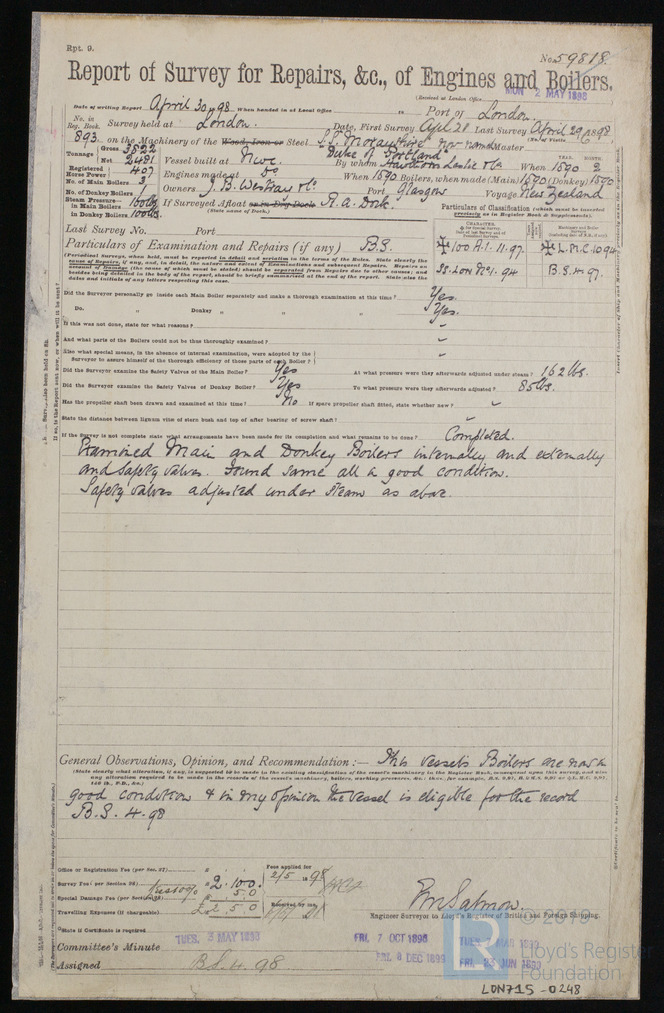 Rpt. 9.
No. 59818.
Report of Survey for Repairs, &c., of Engines and Boilers.
(Received at London Office MON 2 MAY 1898
Date of writing Report April 30 98 When handed in at Local Office to Port of London.
No. in Reg. Book. Survey held at London. Date, First Survey April 28 Last Survey April 29 1898
893 on the Machinery of the Wood, Iron or Steel S.S. Morayshire now named Master
Duke of Portland
Tonnage Gross 3822
Net 2481 Vessel built at Nwc. By whom Hawthorn Leslie & Co When 1890 2
Registered Horse Power 407 Engines made at Do When 1890 Boilers, when made (Main) 1890 (Donkey) 1890
No. of Main Boilers 3
No. of Donkey Boilers 1 Owners J. B. Westray & Co. Port Glasgow Voyage New Zealand
Steam Pressure in Main Boilers 160 lbs If Surveyed Afloat or in Dry Dock R. A. Dock.
in Donkey Boilers 100 lbs (State name of Dock.)
Particulars of Classification (which must be inserted precisely as in Register Book & Supplements).
Last Survey No. Port
Particulars of Examination and Repairs (if any) B.S.
100 A.1. 11.97. L.M.C. 10.94
SS. LON No1. 94 B.S. 4.97.
(Periodical Surveys, when held, must be reported in detail and seriatim in the terms of the Rules. State clearly the cause of Repairs, if any, and, in detail, the nature and extent of Examinations and subsequent Repairs. Repairs on account of Damage (the cause of which must be stated) should be separated from Repairs due to other causes; and besides being detailed in the body of the report, should be briefly summarised at the end of the report. State also the dates and initials of any letters respecting this case.
Did the Surveyor personally go inside each Main Boiler separately and make a thorough examination at this time? Yes.
Do. " Donkey " " " Yes.
If this was not done, state for what reasons? "
And what parts of the Boilers could not be thus thoroughly examined? "
Also what special means, in the absence of internal examination, were adopted by the Surveyor to assure himself of the thorough efficiency of those parts of each Boiler? "
Did the Surveyor examine the Safety Valves of the Main Boiler? Yes At what pressure were they afterwards adjusted under steam? 162 lbs.
Did the Surveyor examine the Safety Valves of Donkey Boiler? Yes To what pressure were they afterwards adjusted? 85 lbs.
Has the propeller shaft been drawn and examined at this time? No If spare propeller shaft fitted, state whether new? "
State the distance between lignum vitæ of stern bush and top of after bearing of screw shaft? "
If the Survey is not complete state what arrangements have been made for its completion and what remains to be done? Completed.
Examined Main and Donkey Boilers internally and externally
and Safety valves. Found same all in good condition.
Safety valves adjusted under steam as above.
General Observations, Opinion, and Recommendation:— This vessel's Boilers are now in
(State clearly what alteration, if any, is suggested to be made in the existing classification of the vessel's machinery in the Register Book, consequent upon this survey, and also
good condition & in my opinion the vessel is eligible for the record
B.S. 4.98
Office or Registration Fee (per Sec. 27)
Fees applied for
2/5 1898
Survey Fee (per Section 28) £ 2 . 10 0.
less 10% 5 0
Special Damage Fee (per Section 28)
Travelling Expenses (if chargeable) £2 . 5 0
Received by me,
R. Salmon.
Engineer Surveyor to Lloyd's Register of British and Foreign Shipping.
State if Certificate is required
Committee's Minute TUES. 3 MAY 1898 FRI. 7 OCT 1898
FRI. 8 DEC 1899 FRI. 23 JUN 1899
Assigned B.S. 4.98
© 2019
Lloyd's Register
Foundation
LON715-0248